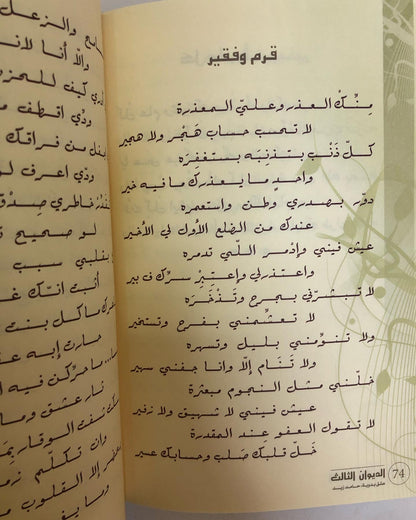 قرم وفقير
منك العذر وعليّ المعذرة
لا تحسب حساب هَجْر ولا هجير
كلّ ذنْب بتذنبَه بستغفرَه
واحدٍ ما يعذرك ما فيه خير
دوّر بصدري وطن واستعمره
عندك من الضلع الأول لي الأخير
عيش فيني وإدمر اللّي تدمره
واعتذرلي وإعتبرْ سرّك ف بير
لا تبشرني بجرحٍ وتَذْخَرَه
لا تعشّمني بفرح وتستخير
ولا تنوّمني بليل وتسهره
ولا تَنَام إلّا وانا جفني سهير
خلّني مثل النجوم مبعثرة
عيش فيني لا شهيق ولا زفير
لا تقول العفو عند المقدرة
خَلّ قلبك صَلب وحسابك عسير
74
الديوان الثالث
حامد زيد
والزعل
والّا أنا لانـ
كيف للحزن
ودّي اقطف
من فراقك
ودّي اعرف لو
خاطري صِدْق
لو صحيح
بقلبي سبب
أنت انتَك غـ
ما كل بنت
حارت إبه عـ
ما حرّكن فيه
نار عشق وما
شفت الوقار
وان تكلّم
إلا القلوب